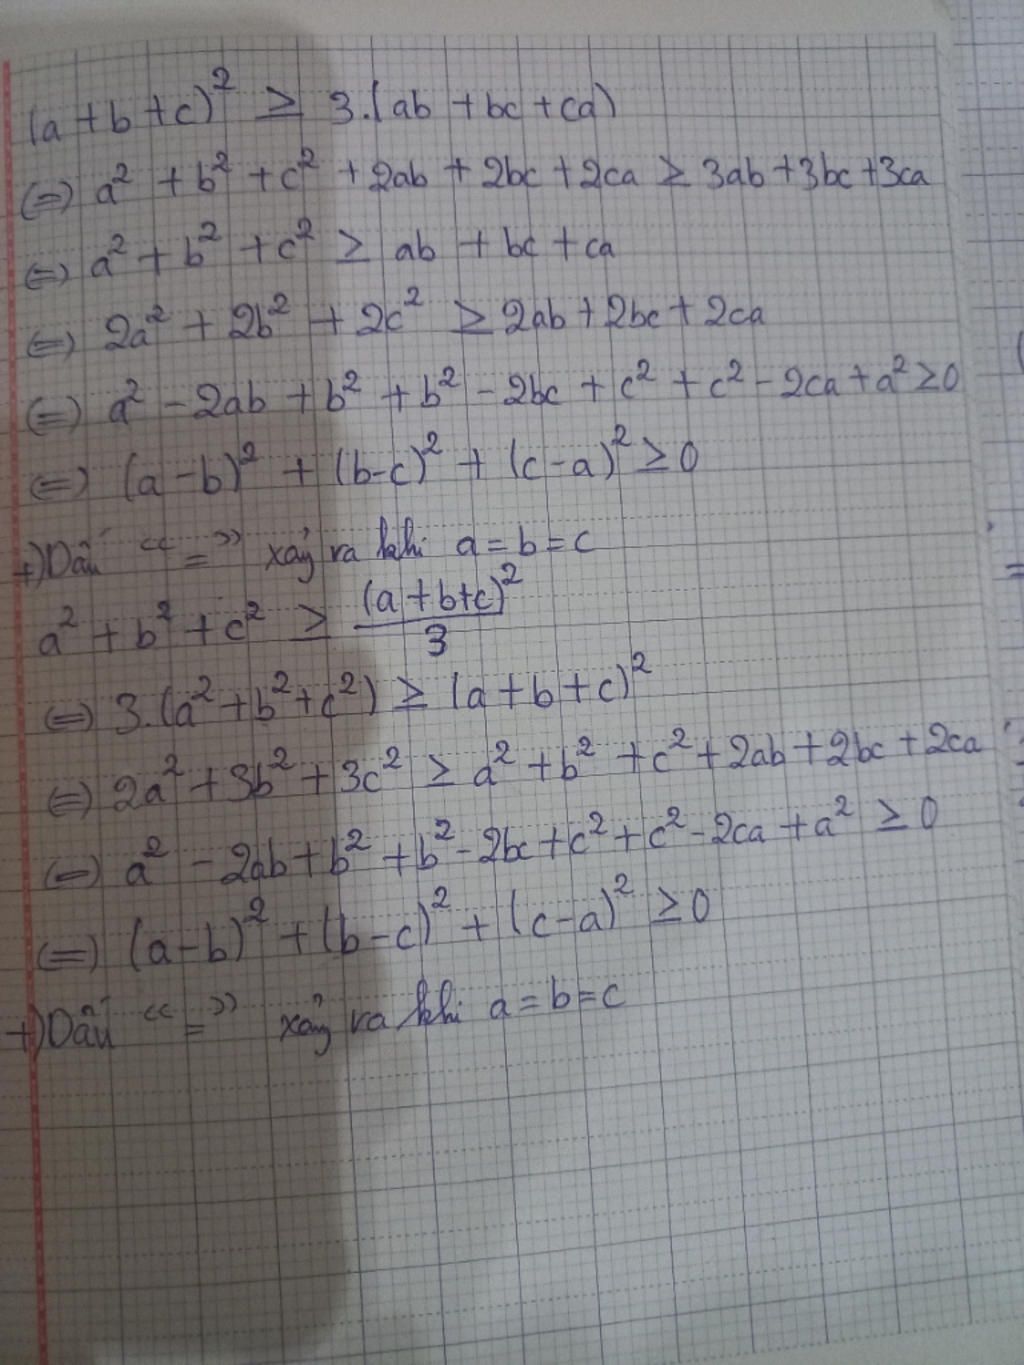 (a + b + c)² ≥ 3.(ab + bc + ca)
(=) a² + b² + c² + 2ab + 2bc + 2ca ≥ 3ab + 3bc + 3ca
(=) a² + b² + c² ≥ ab + bc + ca
(=) 2a² + 2b² + 2c² ≥ 2ab + 2bc + 2ca
(=) a² - 2ab + b² + b² - 2bc + c² + c² - 2ca + a² ≥ 0
(=) (a - b)² + (b - c)² + (c - a)² ≥ 0
+) Dấu “ = ” xảy ra khi a = b = c
a² + b² + c² ≥ (a + b + c)² / 3
(=) 3.(a² + b² + c²) ≥ (a + b + c)²
(=) 2a² + 3b² + 3c² ≥ a² + b² + c² + 2ab + 2bc + 2ca
(=) a² - 2ab + b² + b² - 2bc + c² + c² - 2ca + a² ≥ 0
(=) (a - b)² + (b - c)² + (c - a)² ≥ 0
+) Dấu “ = ” xảy ra khi a = b = c